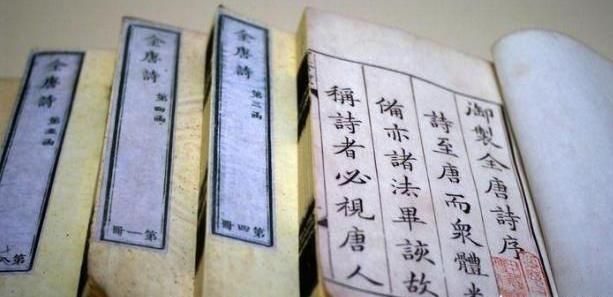 御製全唐詩序
詩至唐而衆體
備亦諸法畢該故
稱詩者必視唐人
全唐詩
第三函
第四冊
全唐詩
第四函
第一冊
全唐詩
第五函